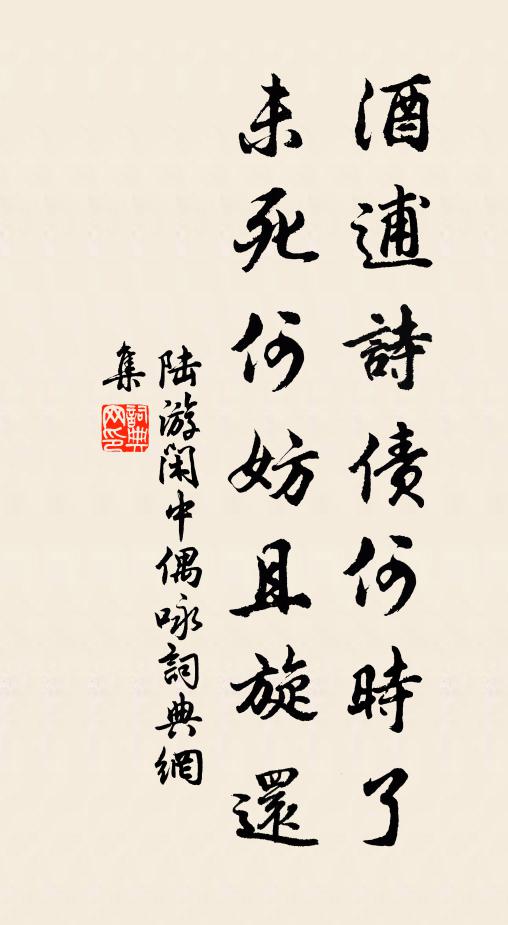 酒逋詩債何時了
未死何妨且旋還
陸游閑中偶咏詞典網
集
詞典網印